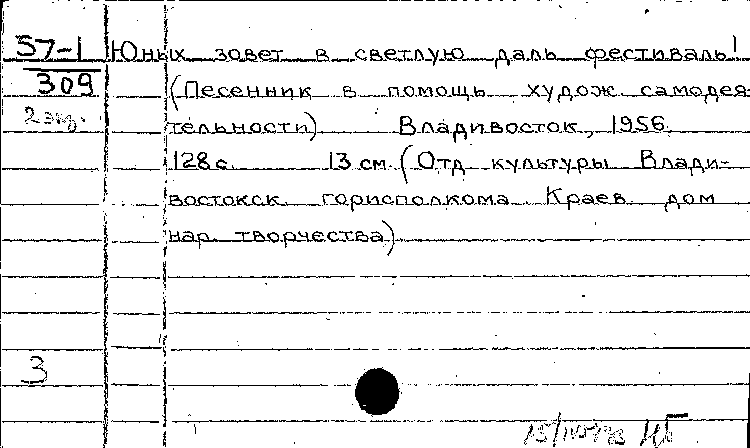 57-1 Юных зовет в светлую даль фестиваль!
309 (Песенник в помощь худож. самодея-
2 экз. тельности). Владивосток, 1956.
128 с. 13 см. (Отд. культуры Влади-
востокск. горисполкома. Краев. дом
нар. творчества)
3